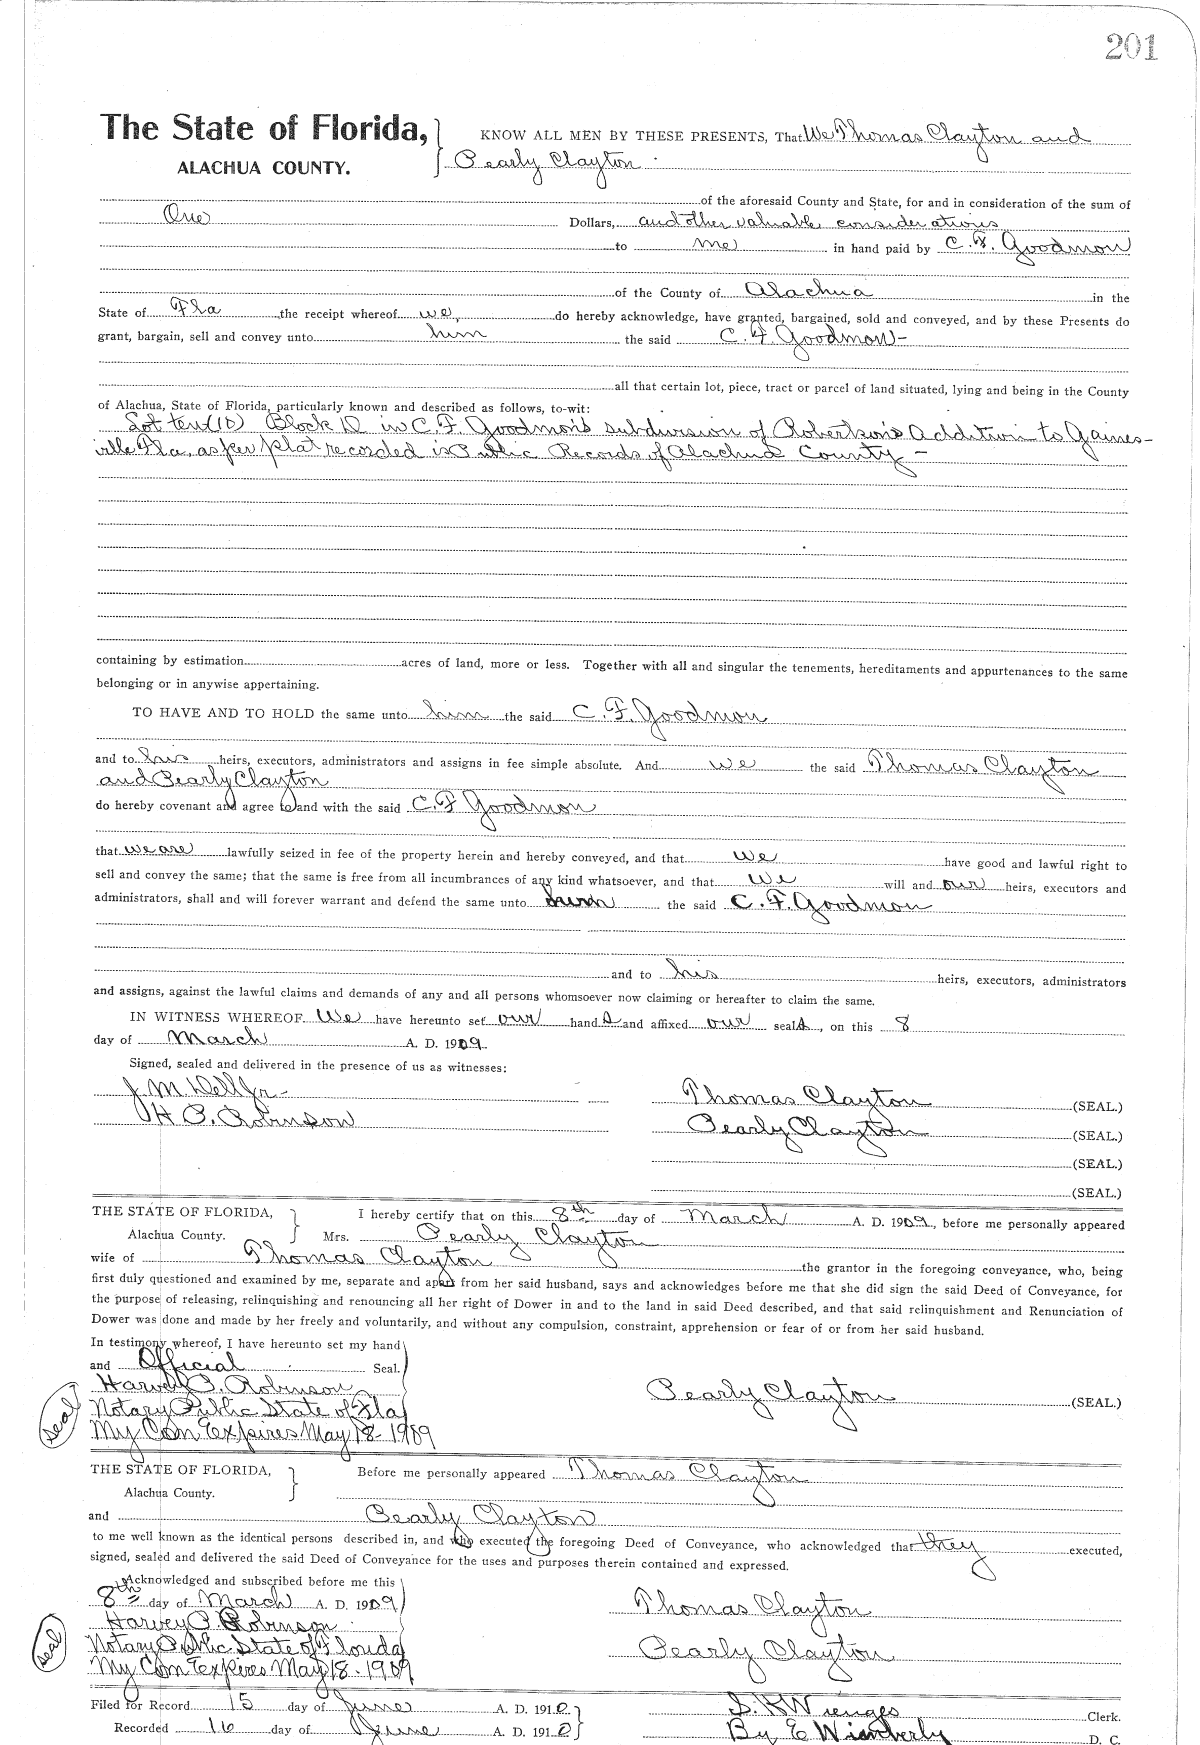 201
The State of Florida,
ALACHUA COUNTY.
KNOW ALL MEN BY THESE PRESENTS, That We Thomas Clayton and
Pearly Clayton
of the aforesaid County and State, for and in consideration of the sum of
One Dollars, and other valuable considerations
to me in hand paid by C. F. Goodmon
of the County of Alachua in the
State of Fla the receipt whereof we, do hereby acknowledge, have granted, bargained, sold and conveyed, and by these Presents do
grant, bargain, sell and convey unto him the said C. F. Goodmon-
all that certain lot, piece, tract or parcel of land situated, lying and being in the County
of Alachua, State of Florida, particularly known and described as follows, to-wit:
Lot ten (10) Block D in C. F. Goodmon's subdivision of Robertson's Addition to Gaines-
ville Fla, as per plat recorded is Public Records of Alachua County -
containing by estimation acres of land, more or less. Together with all and singular the tenements, hereditaments and appurtenances to the same
belonging or in anywise appertaining.
TO HAVE AND TO HOLD the same unto him the said C. F. Goodmon
and to his heirs, executors, administrators and assigns in fee simple absolute. And we the said Thomas Clayton
and Pearly Clayton
do hereby covenant and agree to and with the said C. F Goodmon
that we are lawfully seized in fee of the property herein and hereby conveyed, and that we have good and lawful right to
sell and convey the same; that the same is free from all incumbrances of any kind whatsoever, and that we will and our heirs, executors and
administrators, shall and will forever warrant and defend the same unto him the said C. F. Goodmon
and to his heirs, executors, administrators
and assigns, against the lawful claims and demands of any and all persons whomsoever now claiming or hereafter to claim the same.
IN WITNESS WHEREOF We have hereunto set our hands and affixed our seals, on this 8
day of March A. D. 1909.
Signed, sealed and delivered in the presence of us as witnesses:
J. M. Dell Jr- Thomas Clayton (SEAL.)
H P. Robinson Pearly Clayton (SEAL.)
(SEAL.)
(SEAL.)
THE STATE OF FLORIDA,
Alachua County.
I hereby certify that on this 8th day of March A. D. 1909, before me personally appeared
Mrs. Pearly Clayton
wife of Thomas Clayton the grantor in the foregoing conveyance, who, being
first duly questioned and examined by me, separate and apart from her said husband, says and acknowledges before me that she did sign the said Deed of Conveyance, for
the purpose of releasing, relinquishing and renouncing all her right of Dower in and to the land in said Deed described, and that said relinquishment and Renunciation of
Dower was done and made by her freely and voluntarily, and without any compulsion, constraint, apprehension or fear of or from her said husband.
In testimony whereof, I have hereunto set my hand
and Official Seal.
Harvey P. Robinson Pearly Clayton (SEAL.)
seal Notary Public State of Fla
My Com Expires May 18 1909
THE STATE OF FLORIDA,
Alachua County.
Before me personally appeared Thomas Clayton
and Pearly Clayton
to me well known as the identical persons described in, and who executed the foregoing Deed of Conveyance, who acknowledged that they executed,
signed, sealed and delivered the said Deed of Conveyance for the uses and purposes therein contained and expressed.
Acknowledged and subscribed before me this
8th day of March A. D. 1909 Thomas Clayton
Harvey P. Robinson
seal Notary Public State of Florida Pearly Clayton
My Com Expires May 18 - 1909
Filed for Record 15 day of June A. D. 1910. S. H Wienges Clerk.
Recorded 16 day of June A. D. 1910 By E Wimberly D. C.